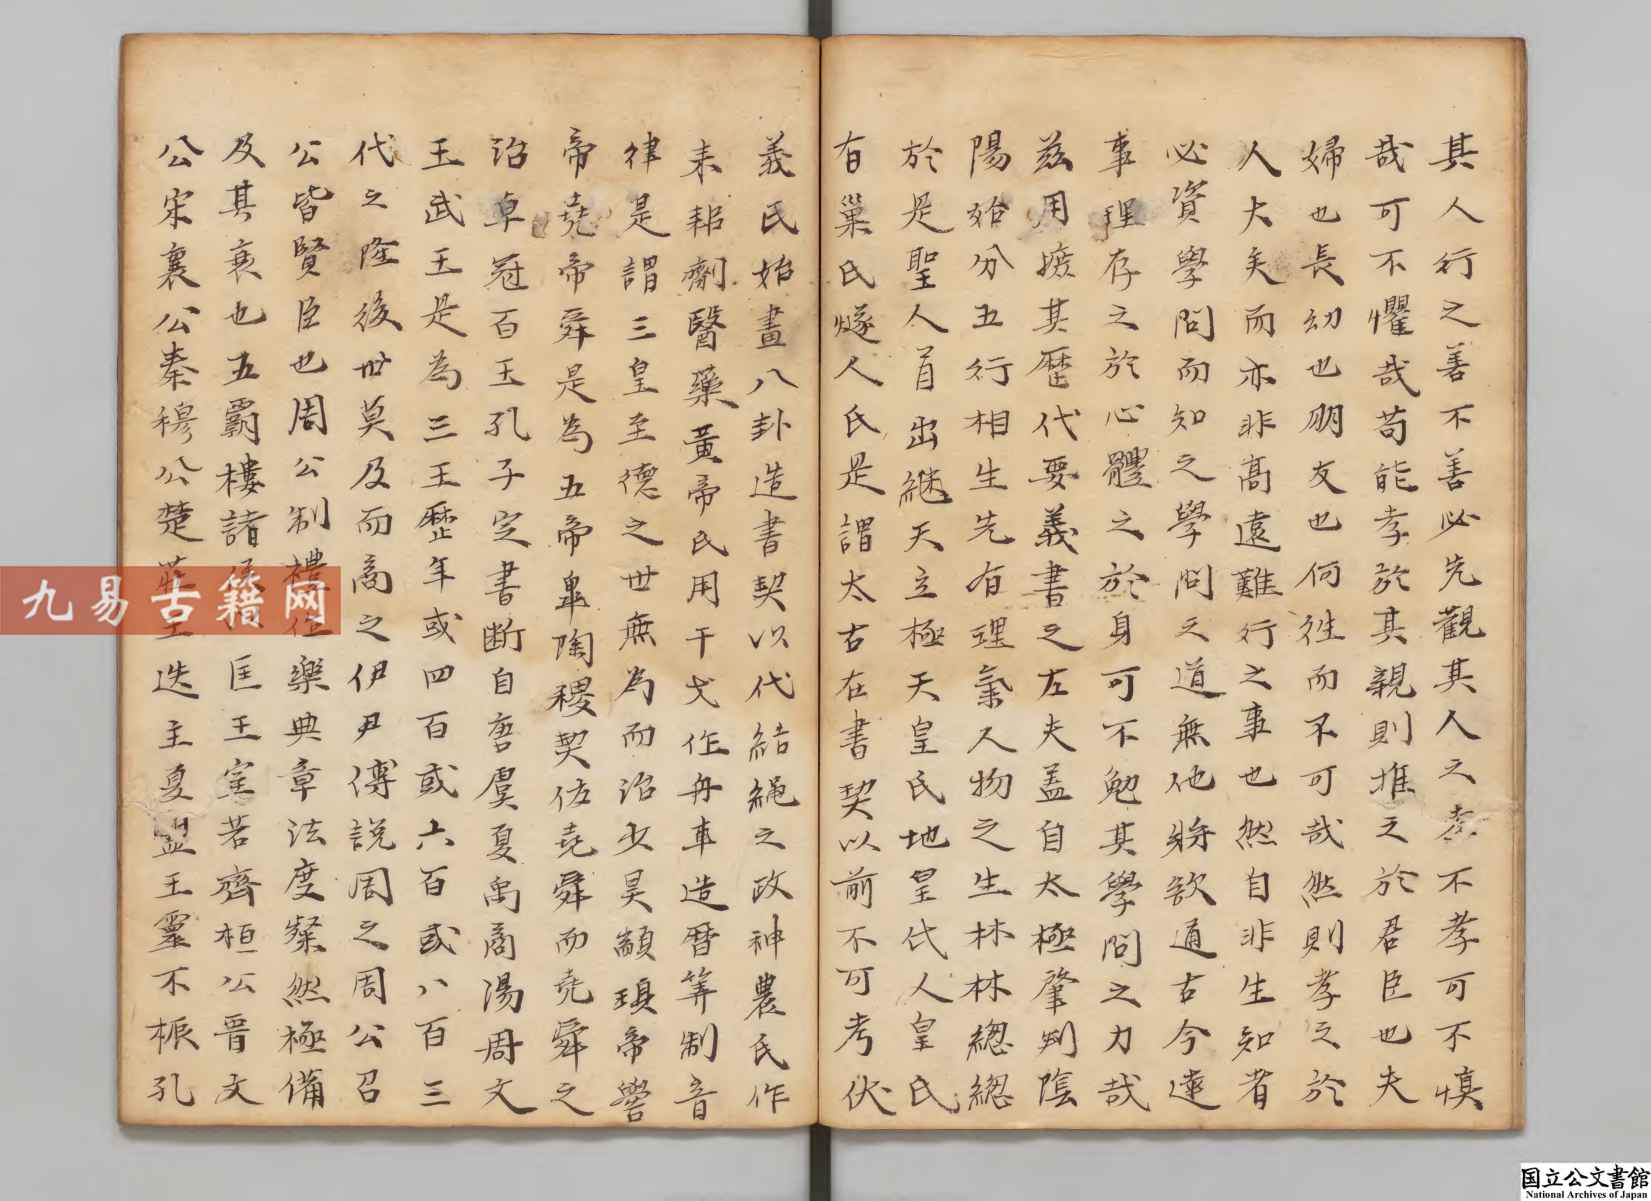 其人行之善不善必先觀其人之孝不孝可不慎
哉可不懼哉苟能孝於其親則推之於君臣也夫
婦也長幼也朋友也何往而不可哉然則孝之於
人大矣而亦非高遠難行之事也然自非生知者
必資學問而知之學問之道無他將欲通古今達
事理存之於心體之於身可不勉其學問之力哉
茲用摭其歷代要義書之左夫盖自太極肇判陰
陽始分五行相生先有理氣人物之生林林總總
於是聖人首出継天立極天皇氏地皇氏人皇氏
有巢氏燧人氏是謂太古在書契以前不可考伏
義氏始畫八卦造書契以代結繩之政神農氏作
耒耜劑醫藥黃帝氏用干戈作舟車造曆筭制音
律是謂三皇至德之世無為而治少昊顓頊帝嚳
帝堯帝舜是為五帝皐陶稷契佐堯舜而堯舜之
治卓冠百王孔子定書断自唐虞夏禹商湯周文
王武王是為三王歷年或四百或六百或八百三
代之隆後世莫及而商之伊尹傅說周之周公召
公皆賢臣也周公制禮作樂典章法度粲然極備
及其衰也五覇摟諸侯 匡王室若齊桓公晉文
公宋襄公秦穆公楚莊王迭主夏盟王靈不振孔
九易古籍网
国立公文書館
National Archives of Japan